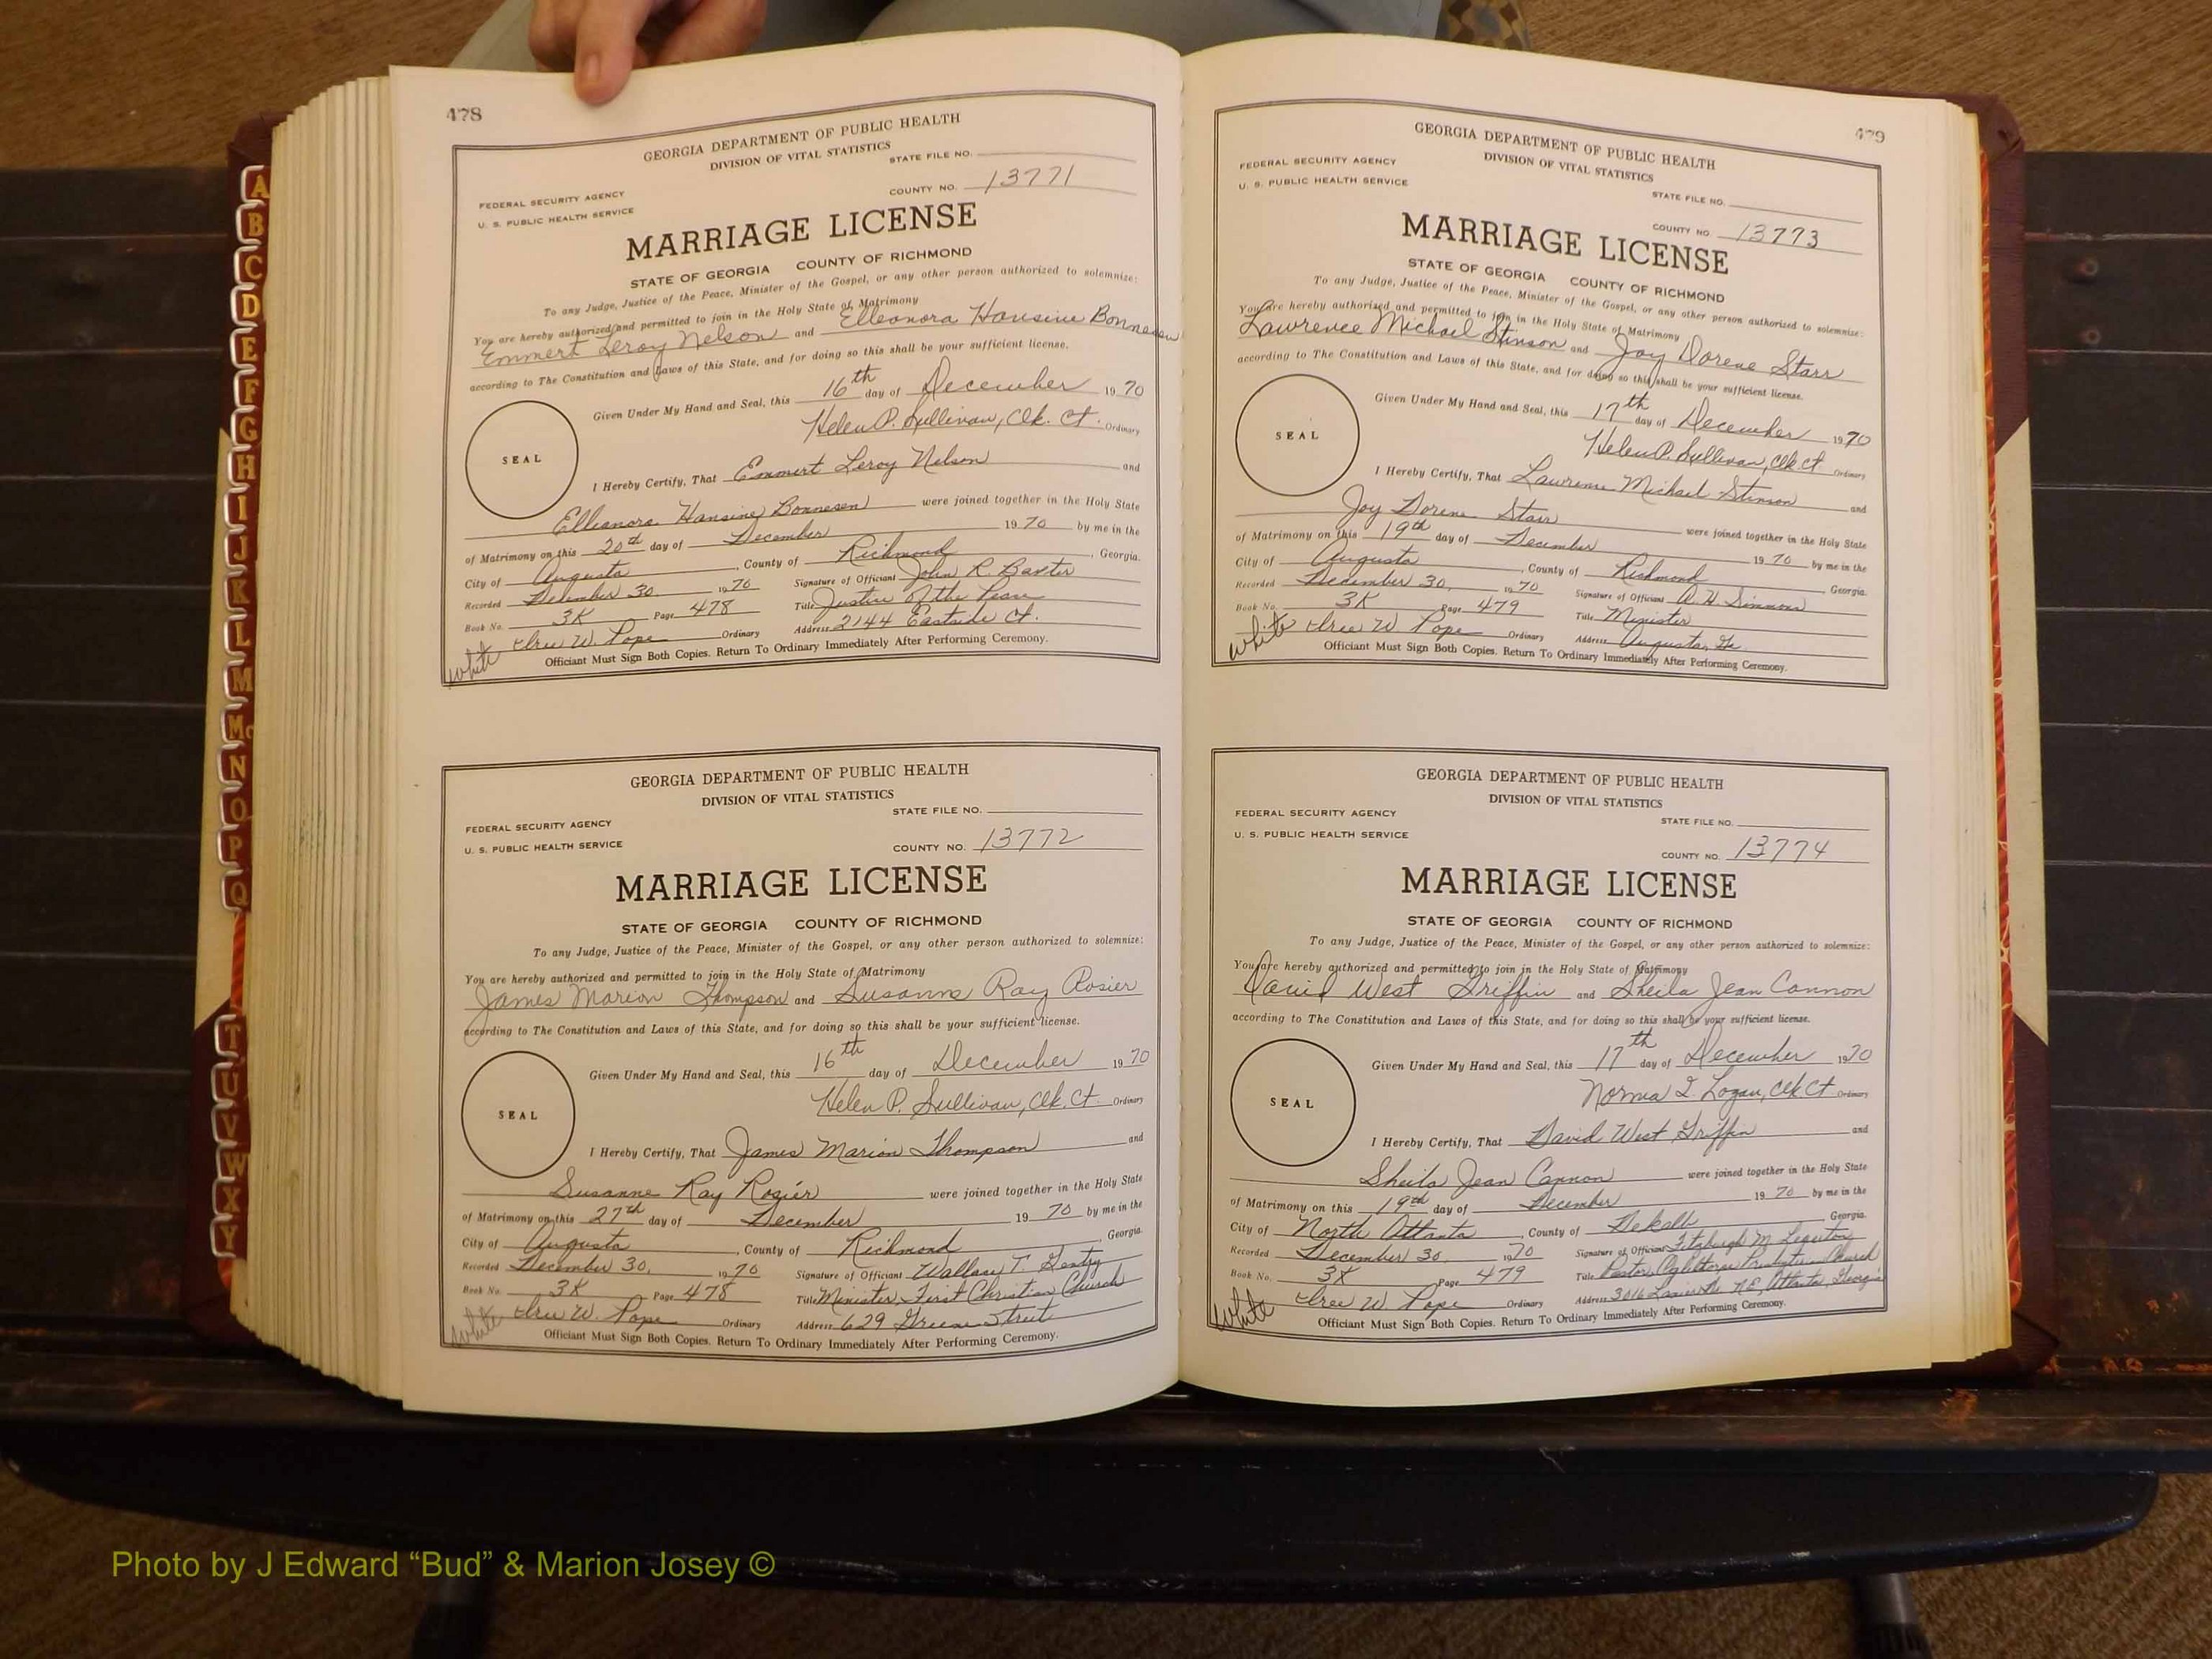 478
GEORGIA DEPARTMENT OF PUBLIC HEALTH
DIVISION OF VITAL STATISTICS
STATE FILE NO.
FEDERAL SECURITY AGENCY
U. S. PUBLIC HEALTH SERVICE
COUNTY NO. 13771
MARRIAGE LICENSE
STATE OF GEORGIA COUNTY OF RICHMOND
To any Judge, Justice of the Peace, Minister of the Gospel, or any other person authorized to solemnize:
You are hereby authorized and permitted to join in the Holy State of Matrimony
Emmert Leroy Nelson and Elleanora Hansine Bonnesen
according to The Constitution and Laws of this State, and for doing so this shall be your sufficient license.
Given Under My Hand and Seal, this 16th day of December 1970
Helen P. Sullivan, Clk. Ct. Ordinary
SEAL
I Hereby Certify, That Emmert Leroy Nelson and
Elleanora Hansine Bonnesen were joined together in the Holy State
of Matrimony on this 20th day of December 1970 by me in the
City of Augusta, County of Richmond, Georgia.
Recorded December 30, 1970 Signature of Officiant John R. Baxter
Book No. 3K Page 478 Title Justice of the Peace
W. Pope Ordinary Address 2144 Eastside Ct.
White
Officiant Must Sign Both Copies. Return To Ordinary Immediately After Performing Ceremony.
GEORGIA DEPARTMENT OF PUBLIC HEALTH
DIVISION OF VITAL STATISTICS
STATE FILE NO.
FEDERAL SECURITY AGENCY
U. S. PUBLIC HEALTH SERVICE
COUNTY NO. 13772
MARRIAGE LICENSE
STATE OF GEORGIA COUNTY OF RICHMOND
To any Judge, Justice of the Peace, Minister of the Gospel, or any other person authorized to solemnize:
You are hereby authorized and permitted to join in the Holy State of Matrimony
James Marion Thompson and Susanne Ray Rosier
according to The Constitution and Laws of this State, and for doing so this shall be your sufficient license.
Given Under My Hand and Seal, this 16th day of December 1970
Helen P. Sullivan, Clk. Ct. Ordinary
SEAL
I Hereby Certify, That James Marion Thompson and
Susanne Ray Rosier were joined together in the Holy State
of Matrimony on this 27th day of December 1970 by me in the
City of Augusta, County of Richmond, Georgia.
Recorded December 30, 1970 Signature of Officiant Wallace T. Gentry
Book No. 3K Page 478 Title Minister, First Christian Church
W. Pope Ordinary Address 629 Greene Street
White
Officiant Must Sign Both Copies. Return To Ordinary Immediately After Performing Ceremony.
479
GEORGIA DEPARTMENT OF PUBLIC HEALTH
DIVISION OF VITAL STATISTICS
FEDERAL SECURITY AGENCY
U. S. PUBLIC HEALTH SERVICE
STATE FILE NO.
COUNTY NO. 13773
MARRIAGE LICENSE
STATE OF GEORGIA COUNTY OF RICHMOND
To any Judge, Justice of the Peace, Minister of the Gospel, or any other person authorized to solemnize:
You are hereby authorized and permitted to join in the Holy State of Matrimony
Lawrence Michael Stinson and Joy Dorene Starr
according to The Constitution and Laws of this State, and for doing so this shall be your sufficient license.
Given Under My Hand and Seal, this 17th day of December 1970
Helen P. Sullivan, Clk Ct. Ordinary
SEAL
I Hereby Certify, That Lawrence Michael Stinson and
Joy Dorene Starr were joined together in the Holy State
of Matrimony on this 19th day of December 1970 by me in the
City of Augusta, County of Richmond Georgia.
Recorded December 30, 1970 Signature of Officiant Simmons
Book No. 3K Page 479 Title Minister
W Pope Ordinary Address Augusta, Ga.
White
Officiant Must Sign Both Copies. Return To Ordinary Immediately After Performing Ceremony.
GEORGIA DEPARTMENT OF PUBLIC HEALTH
DIVISION OF VITAL STATISTICS
FEDERAL SECURITY AGENCY
STATE FILE NO.
U. S. PUBLIC HEALTH SERVICE
COUNTY NO. 13774
MARRIAGE LICENSE
STATE OF GEORGIA COUNTY OF RICHMOND
To any Judge, Justice of the Peace, Minister of the Gospel, or any other person authorized to solemnize:
You are hereby authorized and permitted to join in the Holy State of Matrimony
David West Griffin and Sheila Jean Cannon
according to The Constitution and Laws of this State, and for doing so this shall be your sufficient license.
Given Under My Hand and Seal, this 17th day of December 1970
Norma I. Logan, Clk Ct Ordinary
SEAL
I Hereby Certify, That David West Griffin and
Sheila Jean Cannon were joined together in the Holy State
of Matrimony on this 19th day of December 1970 by me in the
City of North Atlanta, County of Dekalb Georgia.
Recorded December 30, 1970 Signature of Officiant Fitzhugh M. Legerton
Book No. 3K Page 479 Title Pastor, Oglethorpe Presbyterian Church
W Pope Ordinary Address 3016 Lanier Dr. N.E, Atlanta, Georgia
White
Officiant Must Sign Both Copies. Return To Ordinary Immediately After Performing Ceremony.
A
B
C
D
E
F
G
H
I
J
K
L
M
Mc
N
O
P
Q
T
U
V
W
X
Y
Photo by J Edward “Bud” & Marion Josey ©